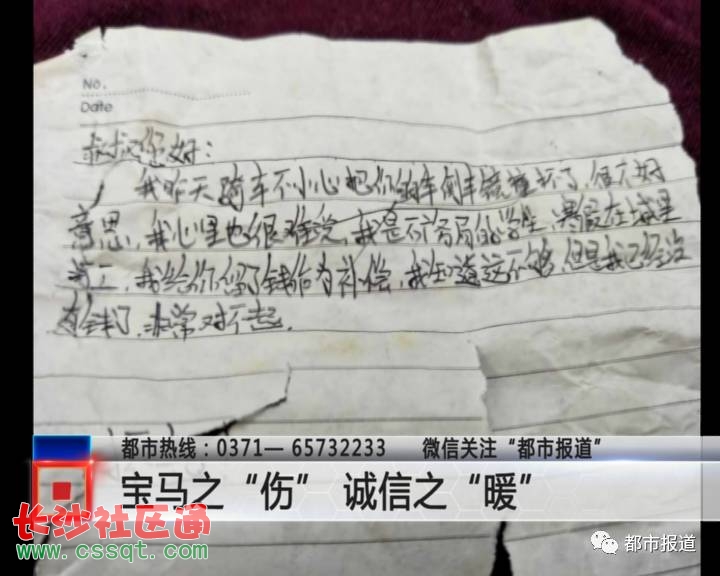 No.
Date
叔叔你好:
我昨天骑车不小心把你的车倒车镜撞坏了,很不好
意思,我心里也很难受,我是矿务局的学生,寒假在城里
打工,我给你留了钱作为补偿,我知道这不够,但是我已经没
有钱了,非常对不起.
都市热线:0371—65732233 微信关注“都市报道”
宝马之“伤” 诚信之“暖”
长沙社区通
www.cssqt.com
都市报道